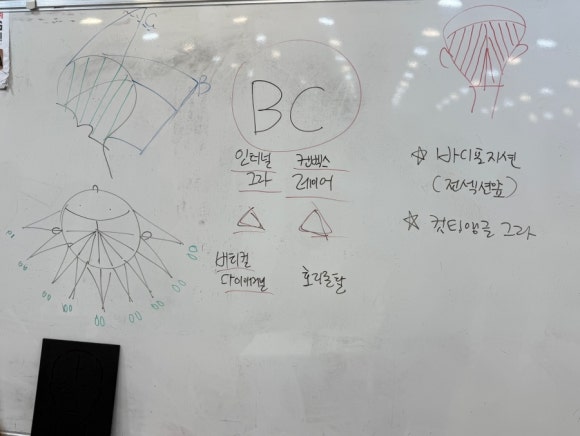 C
B
BC
인터널 컨벡스
그라 레이어
버티컬
다이애거널 호리존탈
☆ 바디포지션
(전섹션앞)
☆ 컷티앵글 그라